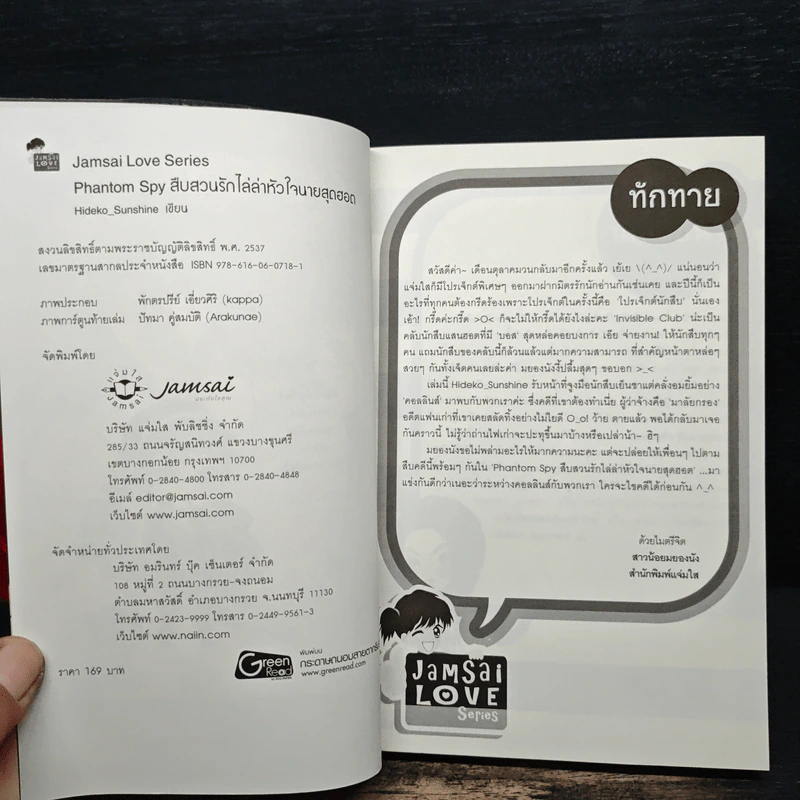 JAMSAI
LOVE
Series
Jamsai Love Series
Phantom Spy สืบสวนรักไล่ล่าหัวใจนายสุดฮอต
Hideko_Sunshine เขียน
สงวนลิขสิทธิ์ตามพระราชบัญญัติลิขสิทธิ์ พ.ศ. 2537
เลขมาตรฐานสากลประจำหนังสือ ISBN 978-616-06-0718-1
ภาพประกอบ พักตรปรีย์ เอี่ยวศิริ (kappa)
ภาพการ์ตูนท้ายเล่ม ปัทมา คู่สมบัติ (Arakunae)
จัดพิมพ์โดย
แจ่มใส
JAMSAI
Jamsai
บริษัท แจ่มใส พับลิชชิ่ง จำกัด
285/33 ถนนจรัญสนิทวงศ์ แขวงบางขุนศรี
เขตบางกอกน้อย กรุงเทพฯ 10700
โทรศัพท์ 0-2840-4800 โทรสาร 0-2840-4848
อีเมล์ editor@jamsai.com
เว็บไซต์ www.jamsai.com
จัดจำหน่ายทั่วประเทศโดย
บริษัท อมรินทร์ บุ๊ค เซ็นเตอร์ จำกัด
108 หมู่ที่ 2 ถนนบางกรวย-จงถนอม
ตำบลมหาสวัสดิ์ อำเภอบางกรวย จ.นนทบุรี 11130
โทรศัพท์ 0-2423-9999 โทรสาร 0-2449-9561-3
เว็บไซต์ www.naiin.com
ราคา 169 บาท
Green
Read
พิมพ์บน
กระดาษถนอมสายตา
www.greenread.com
ทักทาย
สวัสดีค่า~ เดือนตุลาคมวนกลับมาอีกครั้งแล้ว เย้เย \(^_^)/ แน่นอนว่า
แจ่มใสก็มีโปรเจ็กต์พิเศษๆ ออกมาฝากมิตรรักนักอ่านกันเช่นเคย และปีนี้ก็เป็น
อะไรที่ทุกคนต้องกรี๊ดร้องเพราะโปรเจ็กต์ในครั้งนี้คือ 'โปรเจ็กต์นักสืบ' นั่นเอง
เอ้า! กรี๊ดค่ะกรี๊ด >O< ก็จะไม่ให้กรี๊ดได้ยังไงล่ะคะ 'Invisible Club' น่ะเป็น
คลับนักสืบแสนฮอตที่มี 'บอส' สุดหล่อคอยบงการ เอ๊ย จ่ายงาน! ให้นักสืบทุกๆ
คน แถมนักสืบของคลับนี้ก็ล้วนแล้วแต่มากความสามารถ ที่สำคัญหน้าตาหล่อๆ
สวยๆ กันทั้งเจ็ดคนเลยล่ะค่า มยองนังงี้ปลื้มสุดๆ ขอบอก >_<
เล่มนี้ Hideko_Sunshine รับหน้าที่จูงมือนักสืบเย็นชาแต่คลั่งอมยิ้มอย่าง
'คอลลินส์' มาพบกับพวกเราค่ะ ซึ่งคดีที่เขาต้องทำเนี่ย ผู้ว่าจ้างคือ 'มาลัยกรอง'
อดีตแฟนเก่าที่เขาเคยสลัดทิ้งอย่างไม่ใยดี O_o! ว้าย ตายแล้ว พอได้กลับมาเจอ
กันคราวนี้ ไม่รู้ว่าถ่านไฟเก่าจะปะทุขึ้นมาบ้างหรือเปล่าน้า~ ฮิๆ
มยองนังขอไม่พล่ามอะไรให้มากความนะคะ แต่จะปล่อยให้เพื่อนๆ ไปตาม
สืบคดีนี้พร้อมๆ กันใน 'Phantom Spy สืบสวนรักไล่ล่าหัวใจนายสุดฮอต' ...มา
แข่งกันดีกว่าเนอะว่าระหว่างคอลลินส์กับพวกเรา ใครจะไขคดีได้ก่อนกัน ^_^
ด้วยไมตรีจิต
สาวน้อยมยองนัง
สำนักพิมพ์แจ่มใส
JAMSAI
LOVE
Series